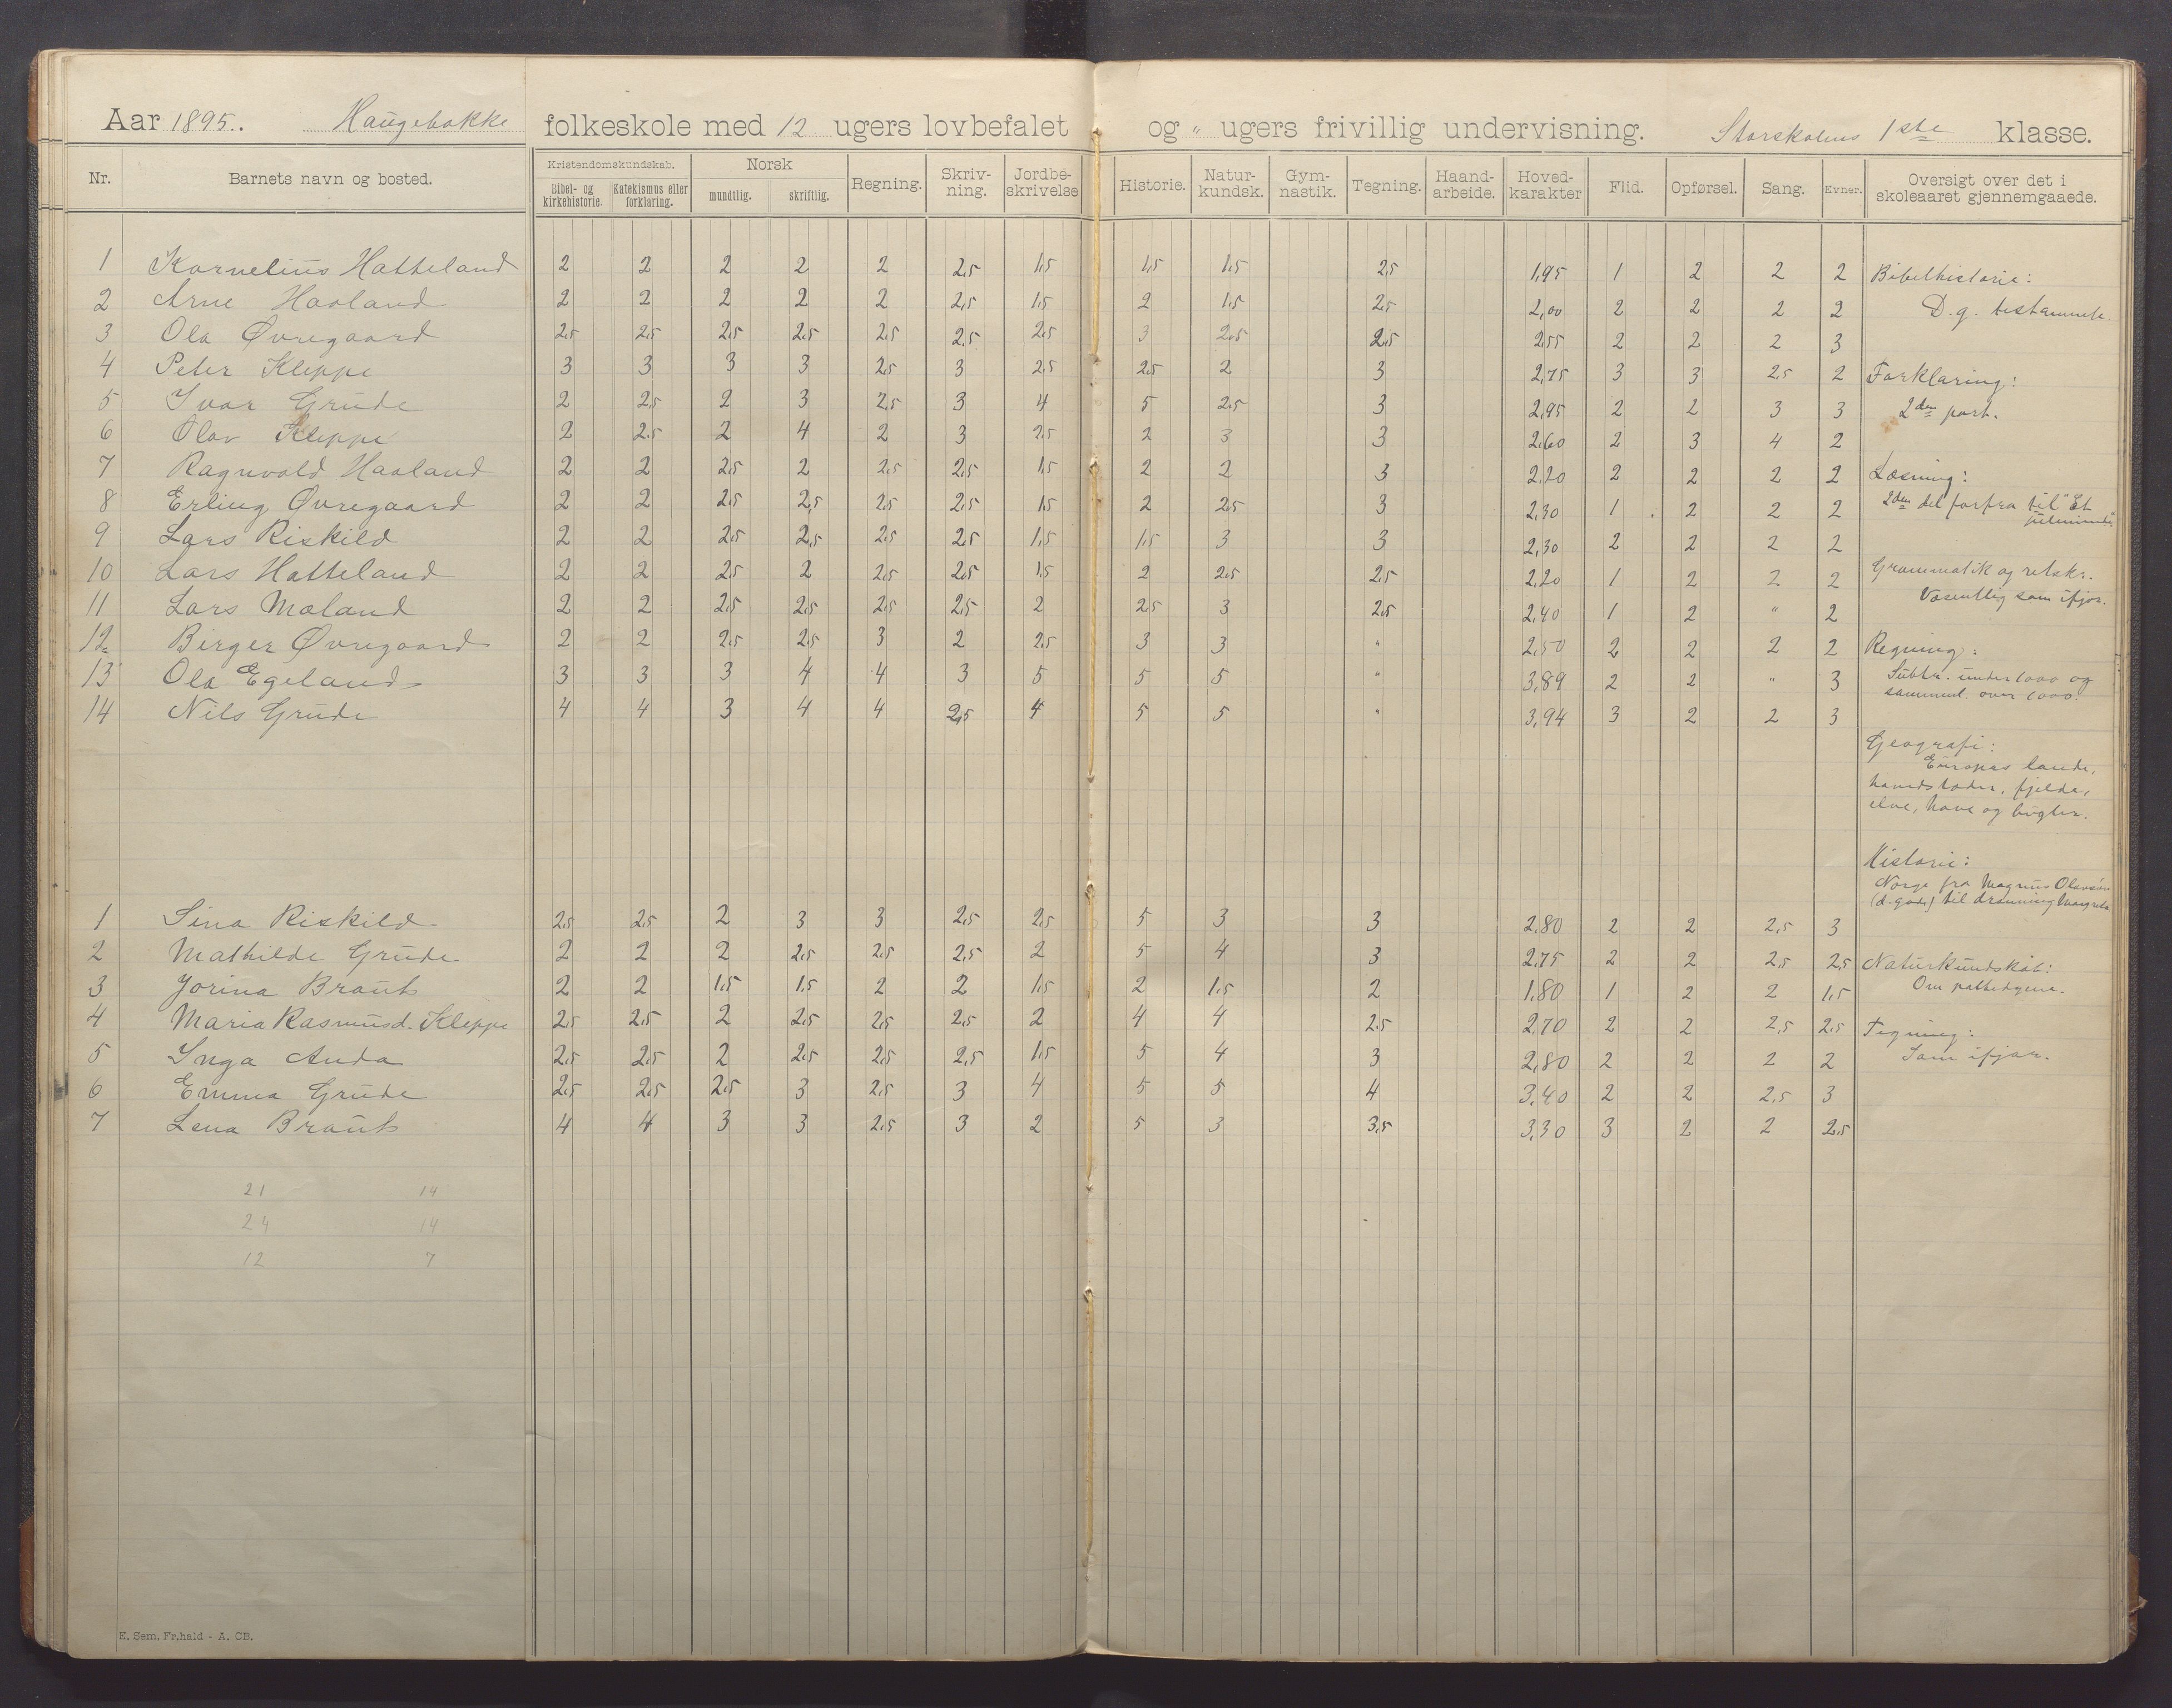 Aar 1895. Haugebakke folkeskole med 12 ugers lovbefalet og " ugers frivillig undervisning. Storskolens 1ste klasse.
Nr. Barnets navn og bosted. Kristendomskundskab. Bibel- og kirkehistorie. Katekismus eller forklaring. Norsk mundtlig. skriftlig. Regning. Skriv-ning. Jordbe-skrivelse Historie. Natur-kundsk. Gym-nastik. Tegning. Haand-arbeide. Hoved-karakter Flid. Opførsel. Sang. Evner. Oversigt over det i skoleaaret gjennemgaaede.
1 Kornelius Hatteland 2 2 2 2 2 2,5 1,5 1,5 1,5 2,5 1,95 1 2 2 2
2 Arne Haaland 2 2 2 2 2 2,5 1,5 2 1,5 2,5 2,00 2 2 2 2
3 Ola Øvregaard 2,5 2,5 2,5 2,5 2,5 2,5 2,5 3 2,5 2,5 2,55 2 2 2 3
4 Peter Kleppe 3 3 3 3 2,5 3 2,5 2,5 2 3 2,75 3 3 2,5 2
5 Ivar Grude 2 2,5 2 3 2,5 3 4 5 2,5 3 2,95 2 2 3 3
6 Olav Kleppe 2 2,5 2 4 2 3 2,5 2 3 3 2,60 2 3 4 2
7 Ragnvald Haaland 2 2 2,5 2 2,5 2,5 1,5 2 2 3 2,20 2 2 2 2
8 Erling Øvregaard 2 2 2,5 2,5 2,5 2,5 1,5 2 2,5 3 2,30 1 2 2 2
9 Lars Riskild 2 2 2,5 2,5 2,5 2,5 1,5 1,5 3 3 2,30 2 2 2 2
10 Lars Hatteland 2 2 2,5 2 2,5 2,5 1,5 2 2,5 2,5 2,20 1 2 2 2
11 Lars Maland 2 2 2,5 2,5 2,5 2,5 2 2,5 3 2,5 2,40 1 2 " 2
12 Birger Øvregaard 2 2 2,5 2,5 3 2 2,5 3 3 " 2,50 2 2 2 2
13 Ola Egeland 3 3 3 4 4 3 5 5 5 " 3,89 2 2 " 3
14 Nils Grude 4 4 3 4 4 2,5 4 5 5 " 3,94 3 2 2 3
1 Sina Riskild 2,5 2,5 2 3 3 2,5 2,5 5 3 3 2,80 2 2 2,5 3
2 Mathilde Grude 2 2 2 2,5 2,5 2,5 2 5 4 3 2,75 2 2 2,5 2,5
3 Jorina Braut 2 2 1,5 1,5 2 2 1,5 2 1,5 2 1,80 1 2 2 1,5
4 Maria Rasmusd. Kleppe 2,5 2,5 2 2,5 2,5 2,5 2 4 4 2,5 2,70 2 2 2,5 2,5
5 Inga Anda 2,5 2,5 2 2,5 2,5 2,5 1,5 5 4 3 2,80 2 2 2 2
6 Emma Grude 2,5 2,5 2,5 3 2,5 3 4 5 5 4 3,40 2 2 2,5 3
7 Lena Braut 4 4 3 3 2,5 3 2 5 3 3,5 3,30 3 2 2 2,5
21 14
24 14
12 7
Bibelhistorie:
D. g. testamente.
Forklaring:
2den part.
Læsning:
2den del forfra til "Et
juleminde".
Grammatik og retskr.
Væsentlig som ifjor.
Regning:
Subtr. under 1000 og
sammenl. over 1000.
Geografi:
Europas lande,
hovedstæder, fjelde,
elve, have og bugter.
Historie:
Norge fra Magnus Olavsøn
(d. gode) til dronning Margrete
Naturkundskab:
Om pattedyrene.
Tegning:
Som ifjor.
E. Sem. Fr.hald - A. CB.